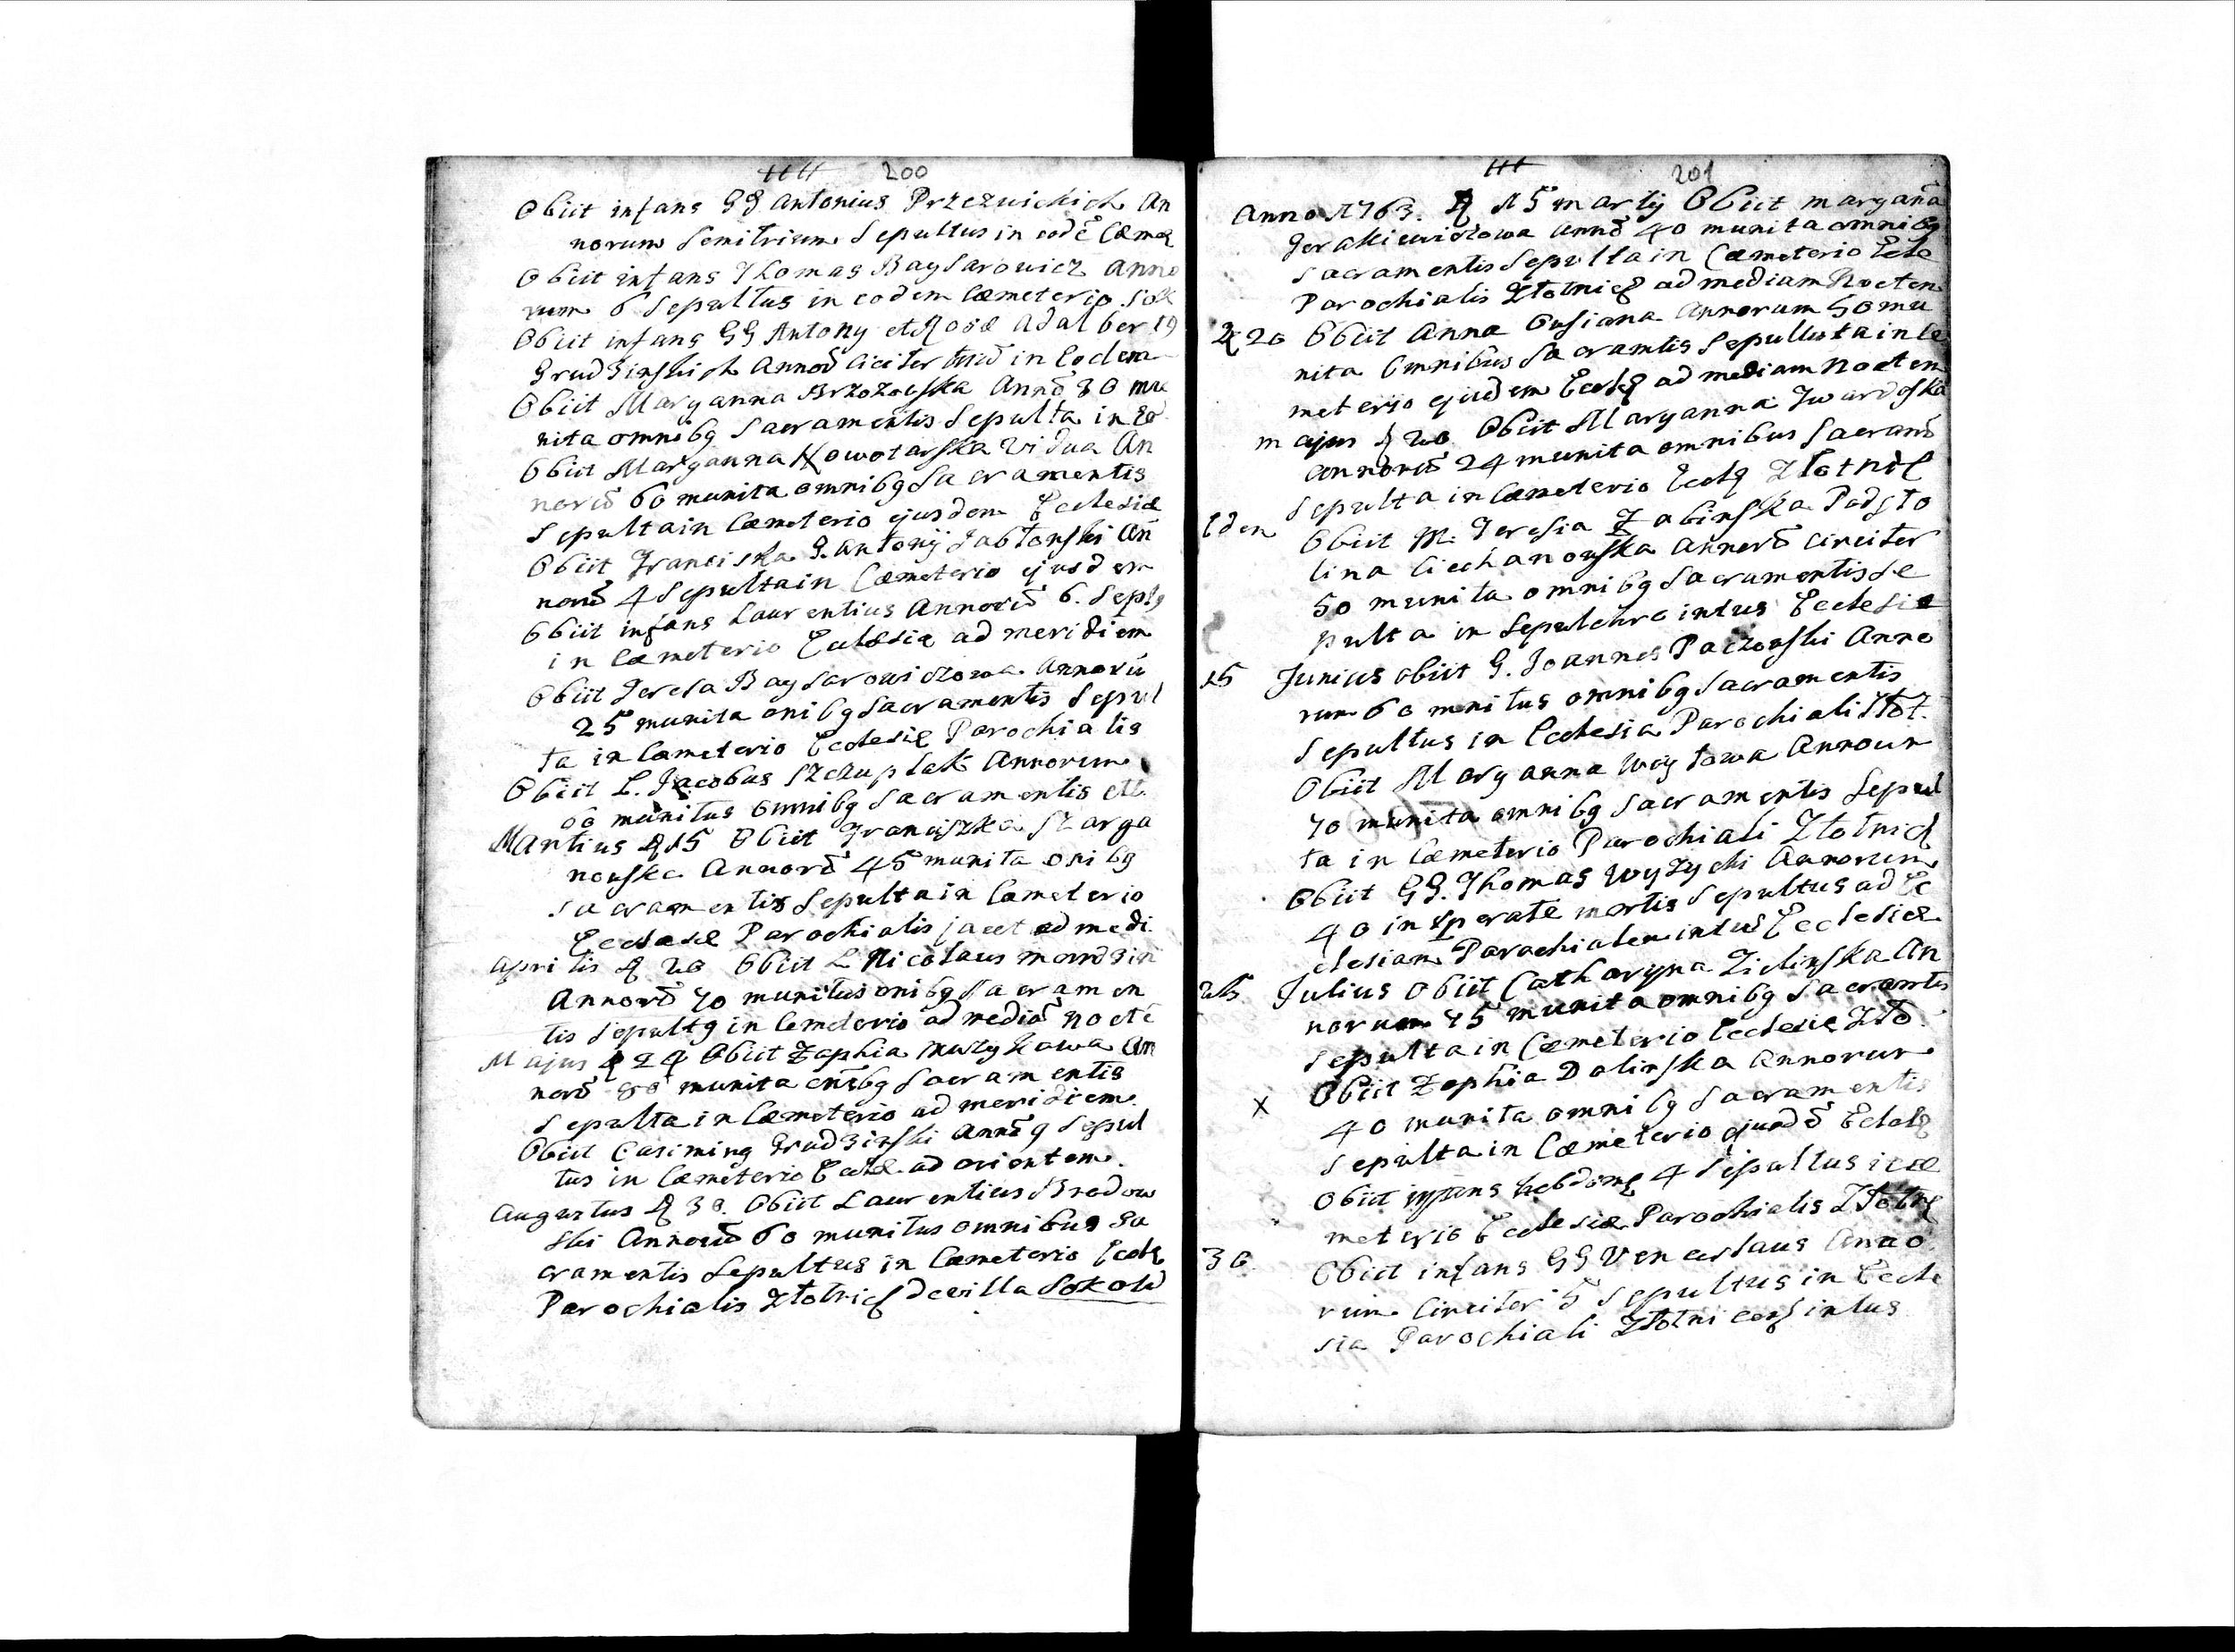 200
Obiit infans GG Antonius Przezwickich An
norum Semitrium Sepultus in eodē Cæme
Obiit infans Thomas Baysarowicz anno
rum 6 Sepultus in eodem Cœmeterio
Obiit infans GG Antony et Rosæ Adalber
Grudzinskich Annoū in Eodem
Obiit Maryanna Brzozoska Annō 30 mu
nita omnibg Sacramentis Sepulta in Eo
Obiit Maryanna Nowotarska Vidua An
norū 60 munita omnibg Sacramentis
Sepulta in Cœmeterio ejusdem Ecclesiæ
Obiit Franciska G. Antonij Jabłonski An
norū 4 Sepulta in Cœmeterio ejusdem
Obiit infans Laurentius Annorū 6. Septg
in Cœmeterio Ecclesiæ ad meridiem
Obiit Teresa Baysarowiczowa Annorū
25 munita onibg Sacramentis Sepul
ta in Cœmeterio Ecclesiæ Parochialis
Obiit L. Jacobus Szczuplak Annorum
60 munitus omnibg Sacramentis ett
Martius 15 Obiit Franciszka Szarga
nowska Annorū 45 munita onibg
Sacramentis Sepulta in Cœmeterio
Ecclesiæ Parochialis jacet ad medi
Aprilis 20 Obiit L Nicolaus
Annorū 70 munitus onibg Sacramen
tis Sepultg in Cemeterio ad mediā noctē
Majus 24 Obiit Zophia Muzykowa An
norū 80 munita onibg Sacramentis
Sepulta in Cœmeterio ad meridiem
Obiit Casimirg Grudzinski Annō 9 Sepul
tus in Cæmeterio Eccl ad orientem
Augustus 30. Obiit Laurentius Brodow
ski Annorū 60 munitus omnibus Sa
cramentis Sepultus in Cœmeterio Eccl
Parochialis Złotnic de villa Sokołō
201
Anno 1763. 15 martij Obiit maryanā
Gerakiewiczowa annō 40 munita omnibg
Sacramentis Sepulta in Cæmeterio Eccle
Parochialis Złotnic ad mediam Noctem
20 Obiit Anna Annorum 50 mu
nita Omnibus Sacramtis Sepulta in Cæ
meterio ejusdem Eccl ad mediam Noctem
majus 20 Obiit Maryanna Twardoska
annorū 24 munita omnibus Sacramō
Sepulta in Cœmeterio Eccl Złotnic
Eden Obiit M. Teresia Zabinska Podsto
lina Ciechanowska Annorū circiter
50 munita omnibg Sacramentis Se
pulta in Sepulchro intus Ecclesiæ
15 Junius obiit G. Joannes Paczoski Anno
rum 60 munitus omnibg Sacramentis
Sepultus in Ecclesia Parochiali Złot.
Obiit Maryanna Woytowa Annorum
70 munita omnibg Sacramentis Sepul
ta in Cœmeterio Parochiali Złotnic
Obiit GG. Thomas Wyzycki Annorum
40 insperate mortis Sepultus ad Ec
clesiam Parochialem intus Ecclesiæ
25 Julius Obiit Catharyna Zielinska An
norum 75 munita omnibg Sacramtis
Sepulta in Cœmeterio Ecclesiæ Złō.
X Obiit Zophia Dolinska Annorum
40 munita omnibg Sacramentis
Sepulta in Cœmeterio ejusdē Eccl
Obiit infans hebdom 4 Sepultus in Cæ
meterio Ecclesiæ Parochialis Złotn
30 Obiit infans GG Venceslaus Anno
rum Circiter 5 Sepultus in Eccle
sia Parochiali Złotni intus